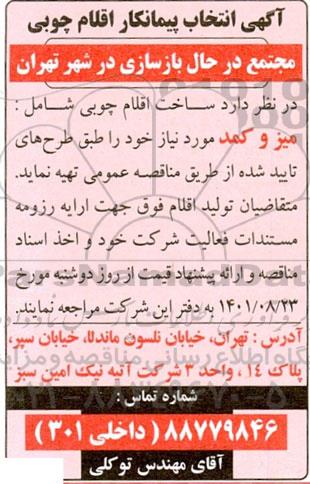 آگهی انتخاب پیمانکار اقلام چوبی
مجتمع در حال بازسازی در شهر تهران
در نظر دارد ساخت اقلام چوبی شامل :
میز و کمد مورد نیاز خود را طبق طرح‌های
تایید شده از طریق مناقصه عمومی تهیه نماید.
متقاضیان تولید اقلام فوق جهت ارایه رزومه
مستندات فعالیت شرکت خود و اخذ اسناد
مناقصه و ارائه پیشنهاد قیمت از روز دوشنبه مورخ
۱۴۰۱/۰۸/۲۳ به دفتر این شرکت مراجعه نمایند.
آدرس : تهران، خیابان نلسون ماندلا، خیابان سپر،
پلاک ۱۴ ، واحد ۳ شرکت آتیه نیک امین سبز
شماره تماس :
۸۸۷۷۹۸۴۶ ( داخلی ۳۰۱ )
آقای مهندس توکلی